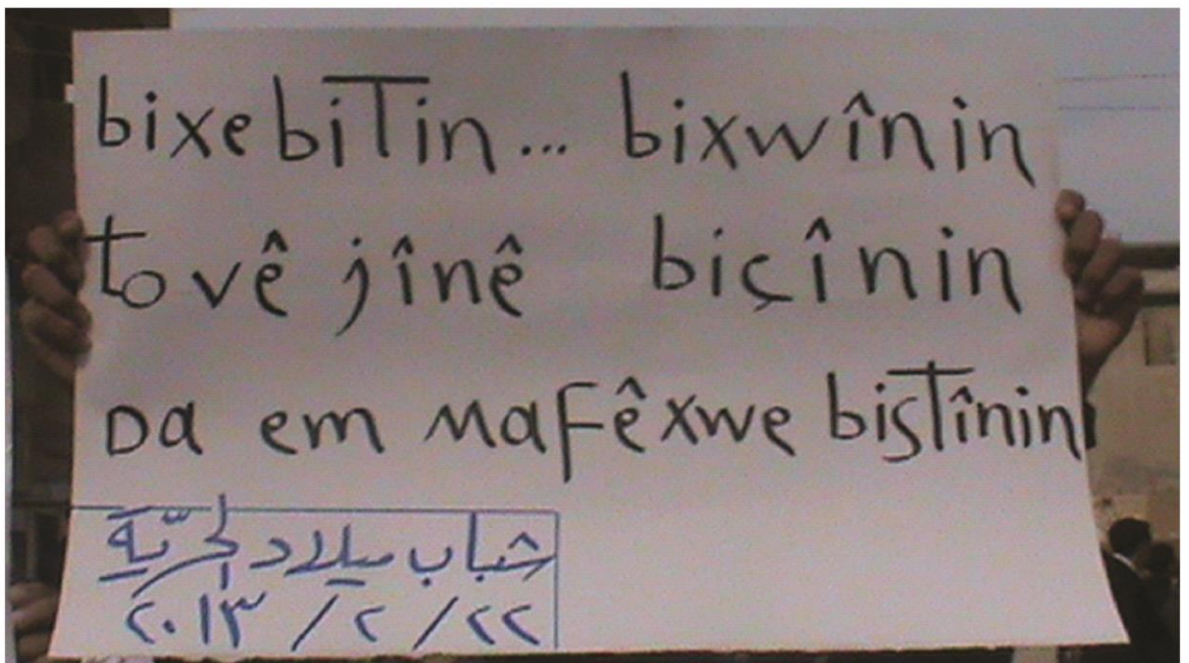 bixebiTin... bixwînin
tovê jînê biçînin
Da em mafêxwe bisTînin
شباب ميلاد الحريّة
٢٢ / ٢ / ٢٠١٣